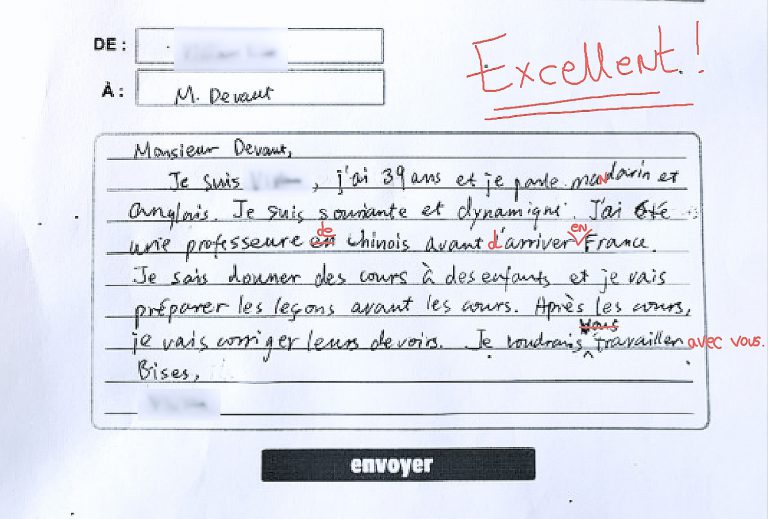 DE :
Excellent !
À : M. Devaut
Monsieur Devaut,
Je suis , j'ai 39 ans et je parle mandarin et
anglais. Je suis souriante et dynamique. J'ai été
une professeure en de chinois avant d'arriver en France.
Je sais donner des cours à des enfants et je vais
préparer les leçons avant les cours. Après les cours,
je vais corriger leurs devoirs. Je voudrais vous travailler avec vous.
Bises,
envoyer